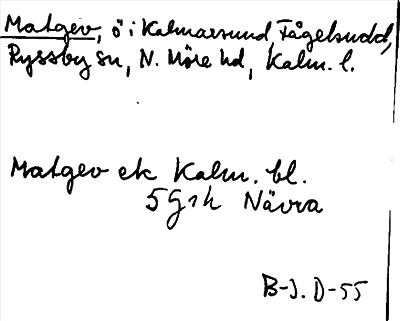 Matgev, ö i Kalmarsund Fågelsudd,
Ryssby sn, N. Möre hd, Kalm. l.
Matgev ek Kalm. bl.
5G1h Nävra
B-J. D-55